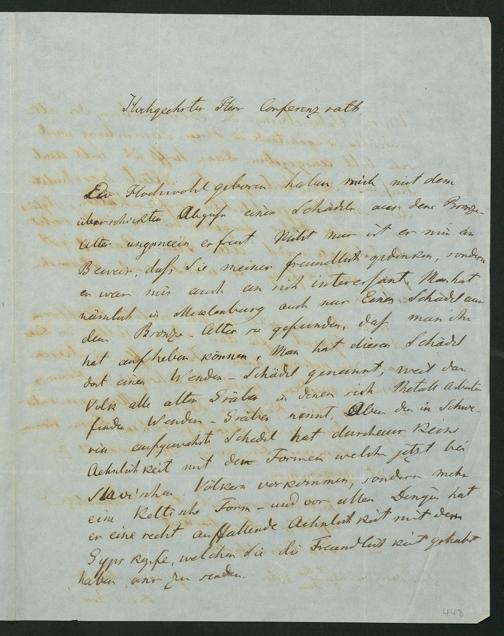 Hochgeehrter Herr Conferenzrath
Ew Hochwohlgeboren haben mich mit dem
überschickten Abguss eines Schädels aus dem Bronze-
alter ungemein erfreut. Nicht nur ist er mir ein
Beweis, daß Sie meiner freundlich gedenken, sondern
er war mir auch an sich interessant. Man hat
nämlich in Meclenburg auch nur Einen Schädel aus
dem Bronze-Alter so gefunden, daß man ihn
hat aufheben können. Man hat diesen Schädel
dort einen Wenden-Schädel genannt, weil das
Volk alle alten Gräber in denen sich Metall Arbeiten
finden Wenden-Gräber nennt. Aber der in Schwe-
rin aufgewahrte Schedel hat durchaus keine
Aehnlichkeit mit den Formen welche jetzt bei
Slavischen Völkern vorkommen, sondern mehr
eine Keltische Form - und vor allen Dingen hat
er eine recht auffallende Aehnlichkeit mit dem
Gypskopfe, welchen Sie die Freundlichkeit gehabt
haben mir zu senden.
448